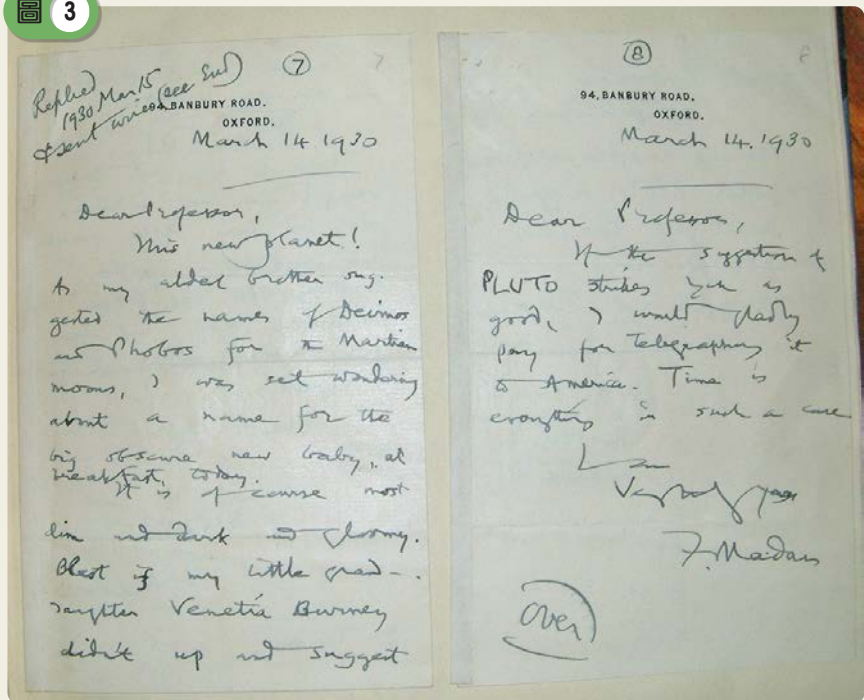 圖 3
Replied
1930 Mar 15
& sent wire (see End)
7
7
94, BANBURY ROAD.
OXFORD.
March 14 1930
Dear Professor,
This new planet!
As my eldest brother sug-
gested the names of Deimos
and Phobos for the Martian
moons, I was set wondering
about a name for the
big obscure new baby, at
breakfast, today.
It is of course most
dim and dark and gloomy.
Blest if my little grand-
daughter Venetia Burney
didn't up and suggest
8
8
94, BANBURY ROAD.
OXFORD.
March 14. 1930
Dear Professor,
If the suggestion of
PLUTO strikes you as
good, I would gladly
pay for telegraphing it
to America. Time is
everything in such a case
I am
Very truly yours
F. Madan
Over